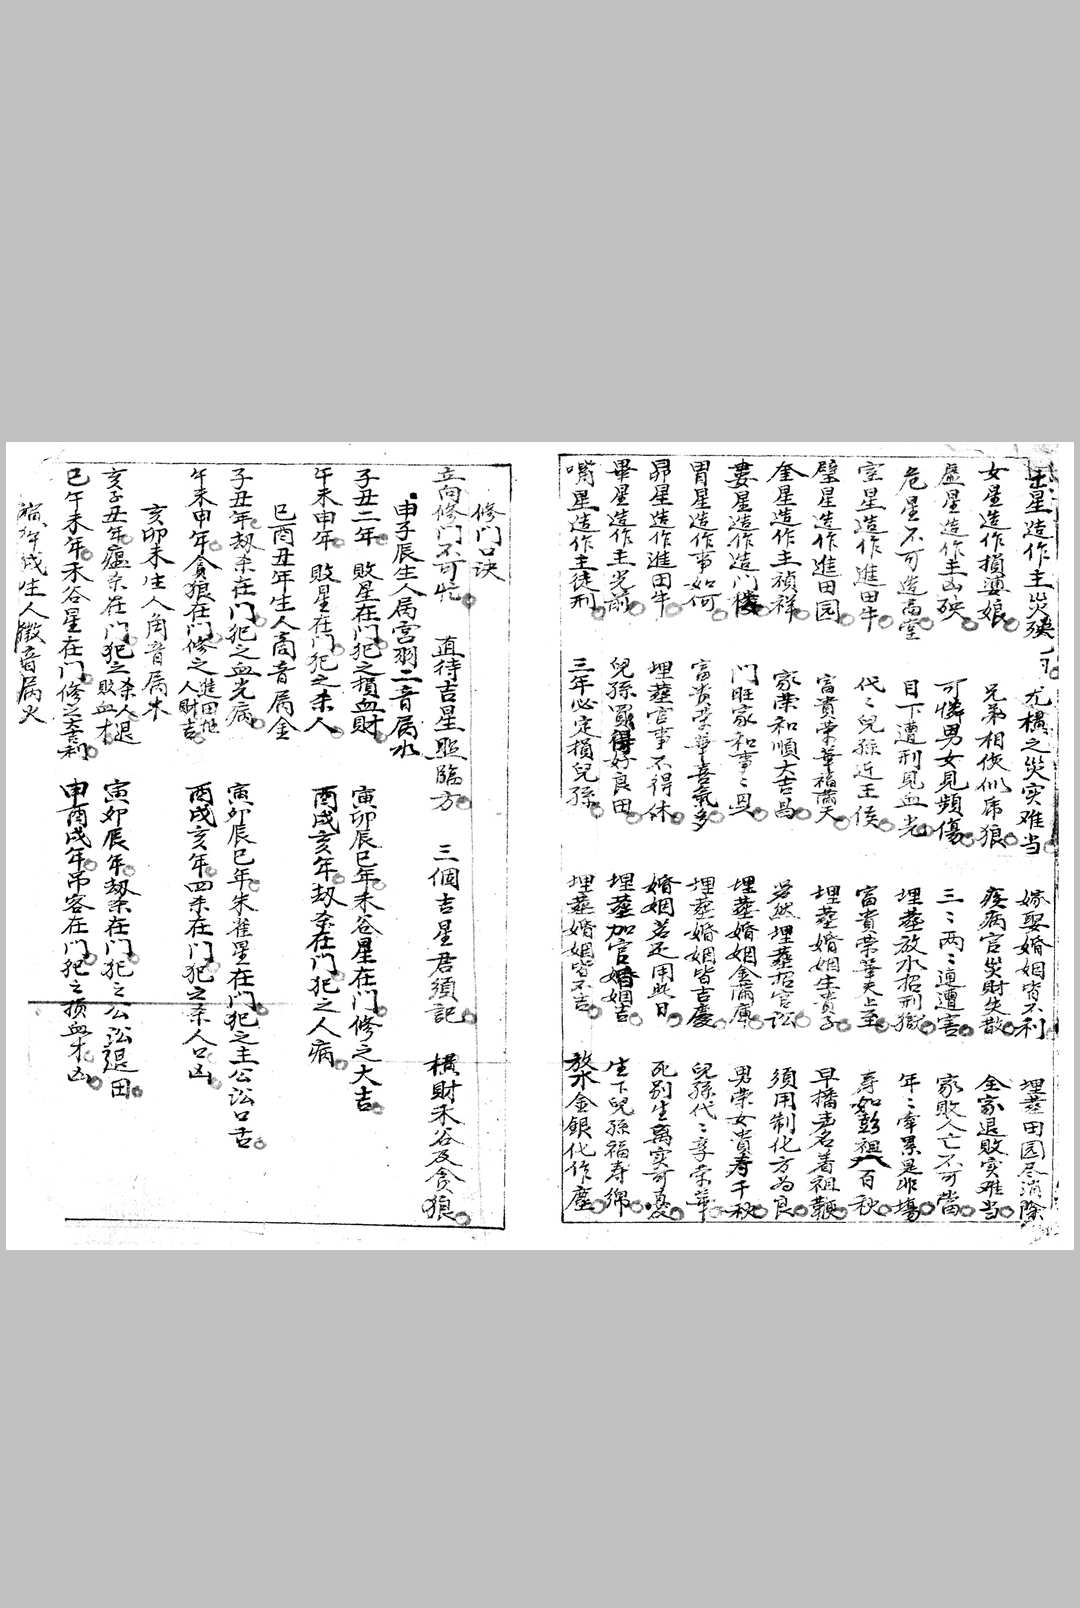 牛星造作主災殃 尤橫之災实难当 嫁娶婚姻皆不利 埋葬田园尽消除
女星造作損婆娘 兄弟相傚似乕狼 疾病官災財失散 全家退敗实难当
虛星造作主凶殃 可憐男女見頻傷 三〻两〻遭遭害 家敗人亡不可當
危星不可造高堂 目下遭刑見血光 埋葬放水招刑獄 年〻牽累是非場
室星造作進田牛 代〻兒孫近王侯 富貴荣華天上至 寿如彭祖八百秋
璧星造作進田园 富貴荣華福滿天 埋葬婚姻生貴子 早播声名着祖鞭
奎星造作主禎祥 家荣和順大吉昌 若然埋葬招官訟 須用制化方為良
婁星造作造门楼 门旺家和事〻 埋葬婚姻金滿庫 男荣女貴寿千秋
胃星造作事如何 富贵荣華喜氣多 埋葬婚姻皆吉慶 兒孫代〻享荣華
昴星造作進田牛 埋葬官事不得休 婚姻若还用此日 死别生离实可憂
畢星造作主光前 兒孫置得好良田 埋葬加官婚姻吉 生下兒孫福寿綿
嘴星造作主徒刑 三年必定損兒孫 埋葬婚姻皆不吉 放水金銀化作塵
修门口诀
立向修门不可忙 直待吉星照臨方 三個吉星君須記 橫財禾谷及贪狼
申子辰生人局宫羽二音属水
子丑二年 敗星在门犯之損血財 寅卯辰巳年禾谷星在门修之大吉
午未申年 敗星在门犯之杀人 酉戌亥年劫杀在门犯之人病
巳酉丑年生人商音属金
子丑年劫杀在门犯之血光病 寅卯辰巳年朱雀星在门犯之主公讼口舌
午未申年贪狼在门修之進田地人財吉 酉戌亥年四杀在门犯之杀人口凶
亥卯未生人角音属木
亥子丑年瘟杀在门犯之杀人退敗血才 寅卯辰年劫杀在门犯之公讼退田
巳午未年禾谷星在门修之大吉利 申酉戌年吊客在门犯之损血才凶
寅午戌生人徵音属火